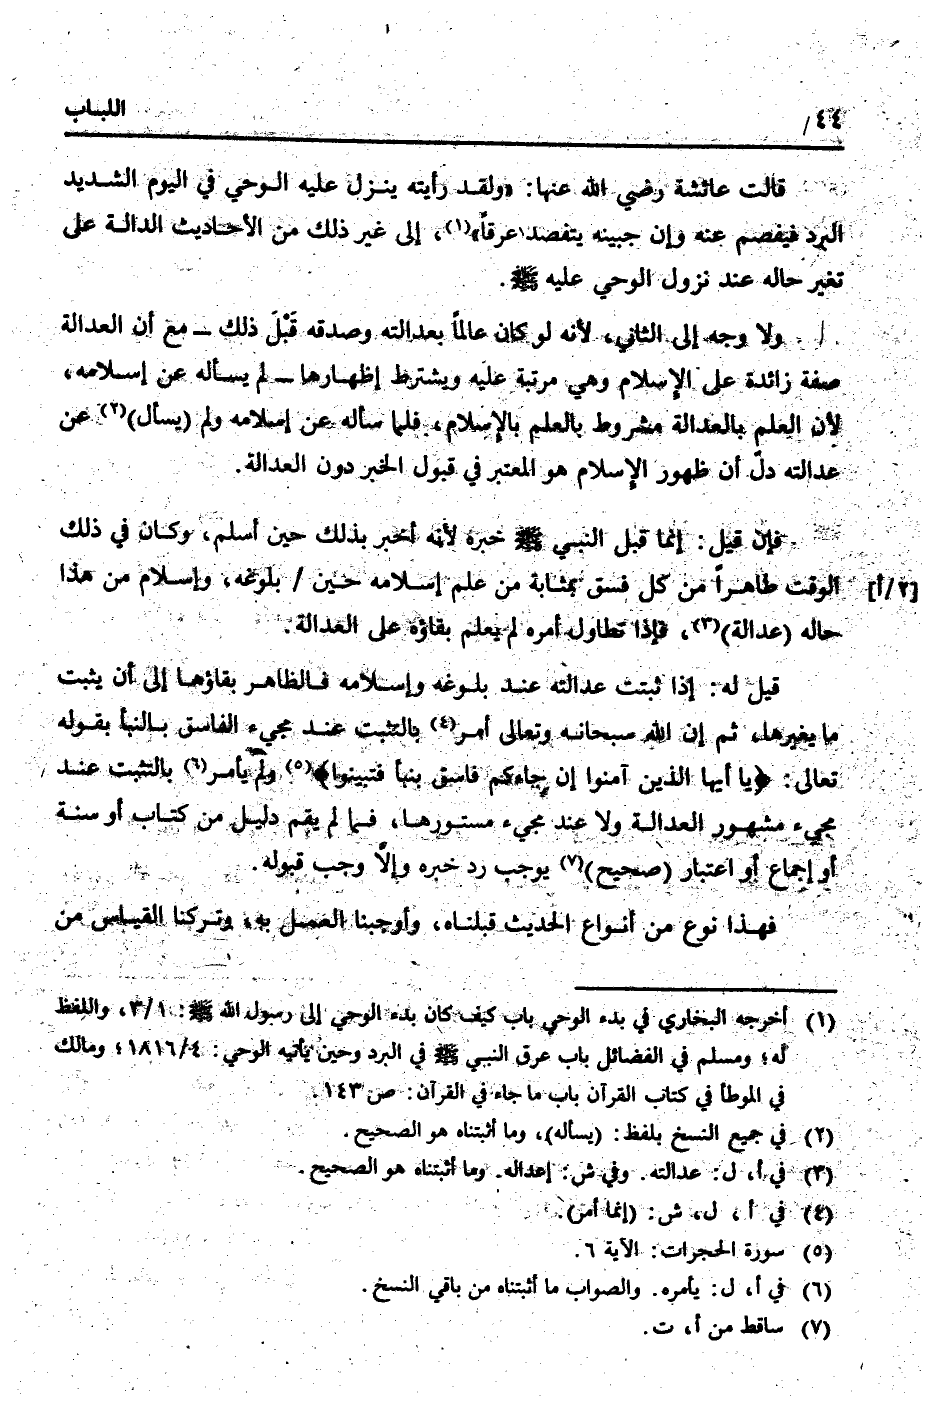 ٤٤/ اللباب
قالت عائشة رضي الله عنها: «ولقد رأيته ينزل عليه الوحي في اليوم الشديد
البرد فيفصم عنه وإن جبينه يتفصد عرقاً»(١)، إلى غير ذلك من الأحاديث الدالة على
تغير حاله عند نزول الوحي عليه ﷺ.
ولا وجه إلى الثاني، لأنه لو كان عالماً بعدالته وصدقه قَبْلَ ذلك ـ مع أن العدالة
صفة زائدة على الإسلام وهي مرتبة عليه ويشترط إظهارها ـ لم يسأله عن إسلامه،
لأن العلم بالعدالة مشروط بالعلم بالإسلام، فلما سأله عن إسلامه ولم (يسأل)(٢) عن
عدالته دلّ أن ظهور الإسلام هو المعتبر في قبول الخبر دون العدالة.
فإن قيل: إنما قبل النبي ﷺ خبره لأنه أخبر بذلك حين أسلم، وكان في ذلك
الوقت طاهراً من كل فسق بمثابة من علم إسلامه حين / بلوغه، وإسلام من هذا [٢/أ]
حاله (عدالة)(٣)، فإذا تطاول أمره لم يعلم بقاؤه على العدالة.
قيل له: إذا ثبتت عدالته عند بلوغه وإسلامه فالظاهر بقاؤها إلى أن يثبت
ما يغيرها، ثم إن الله سبحانه وتعالى أمر(٤) بالتثبت عند مجيء الفاسق بالنبأ بقوله
تعالى: ﴿يا أيها الذين آمنوا إن جاءكم فاسق بنبأ فتبينوا﴾(٥) ولم يأمر(٦) بالتثبت عند
مجيء مشهور العدالة ولا عند مجيء مستورها، فما لم يقم دليل من كتاب أو سنة
أو إجماع أو اعتبار (صحيح)(٧) يوجب رد خبره وإلاّ وجب قبوله.
فهذا نوع من أنواع الحديث قبلناه، وأوجبنا العمل به، وتركنا القياس من
(١) أخرجه البخاري في بدء الوحي باب كيف كان بدء الوحي إلى رسول الله ﷺ: ٣/١، واللفظ
له؛ ومسلم في الفضائل باب عرق النبي ﷺ في البرد وحين يأتيه الوحي: ١٨١٦/٤؛ ومالك
في الموطأ في كتاب القرآن باب ما جاء في القرآن: ص ١٤٣.
(٢) في جميع النسخ بلفظ: (يسأله)، وما أثبتناه هو الصحيح.
(٣) في أ، ل: عدالته. وفي ش: إعداله. وما أثبتناه هو الصحيح.
(٤) في أ، ل، ش: (إنما أمر).
(٥) سورة الحجرات: الآية ٦.
(٦) في أ، ل: يأمره. والصواب ما أثبتناه من باقي النسخ.
(٧) ساقط من أ، ت.